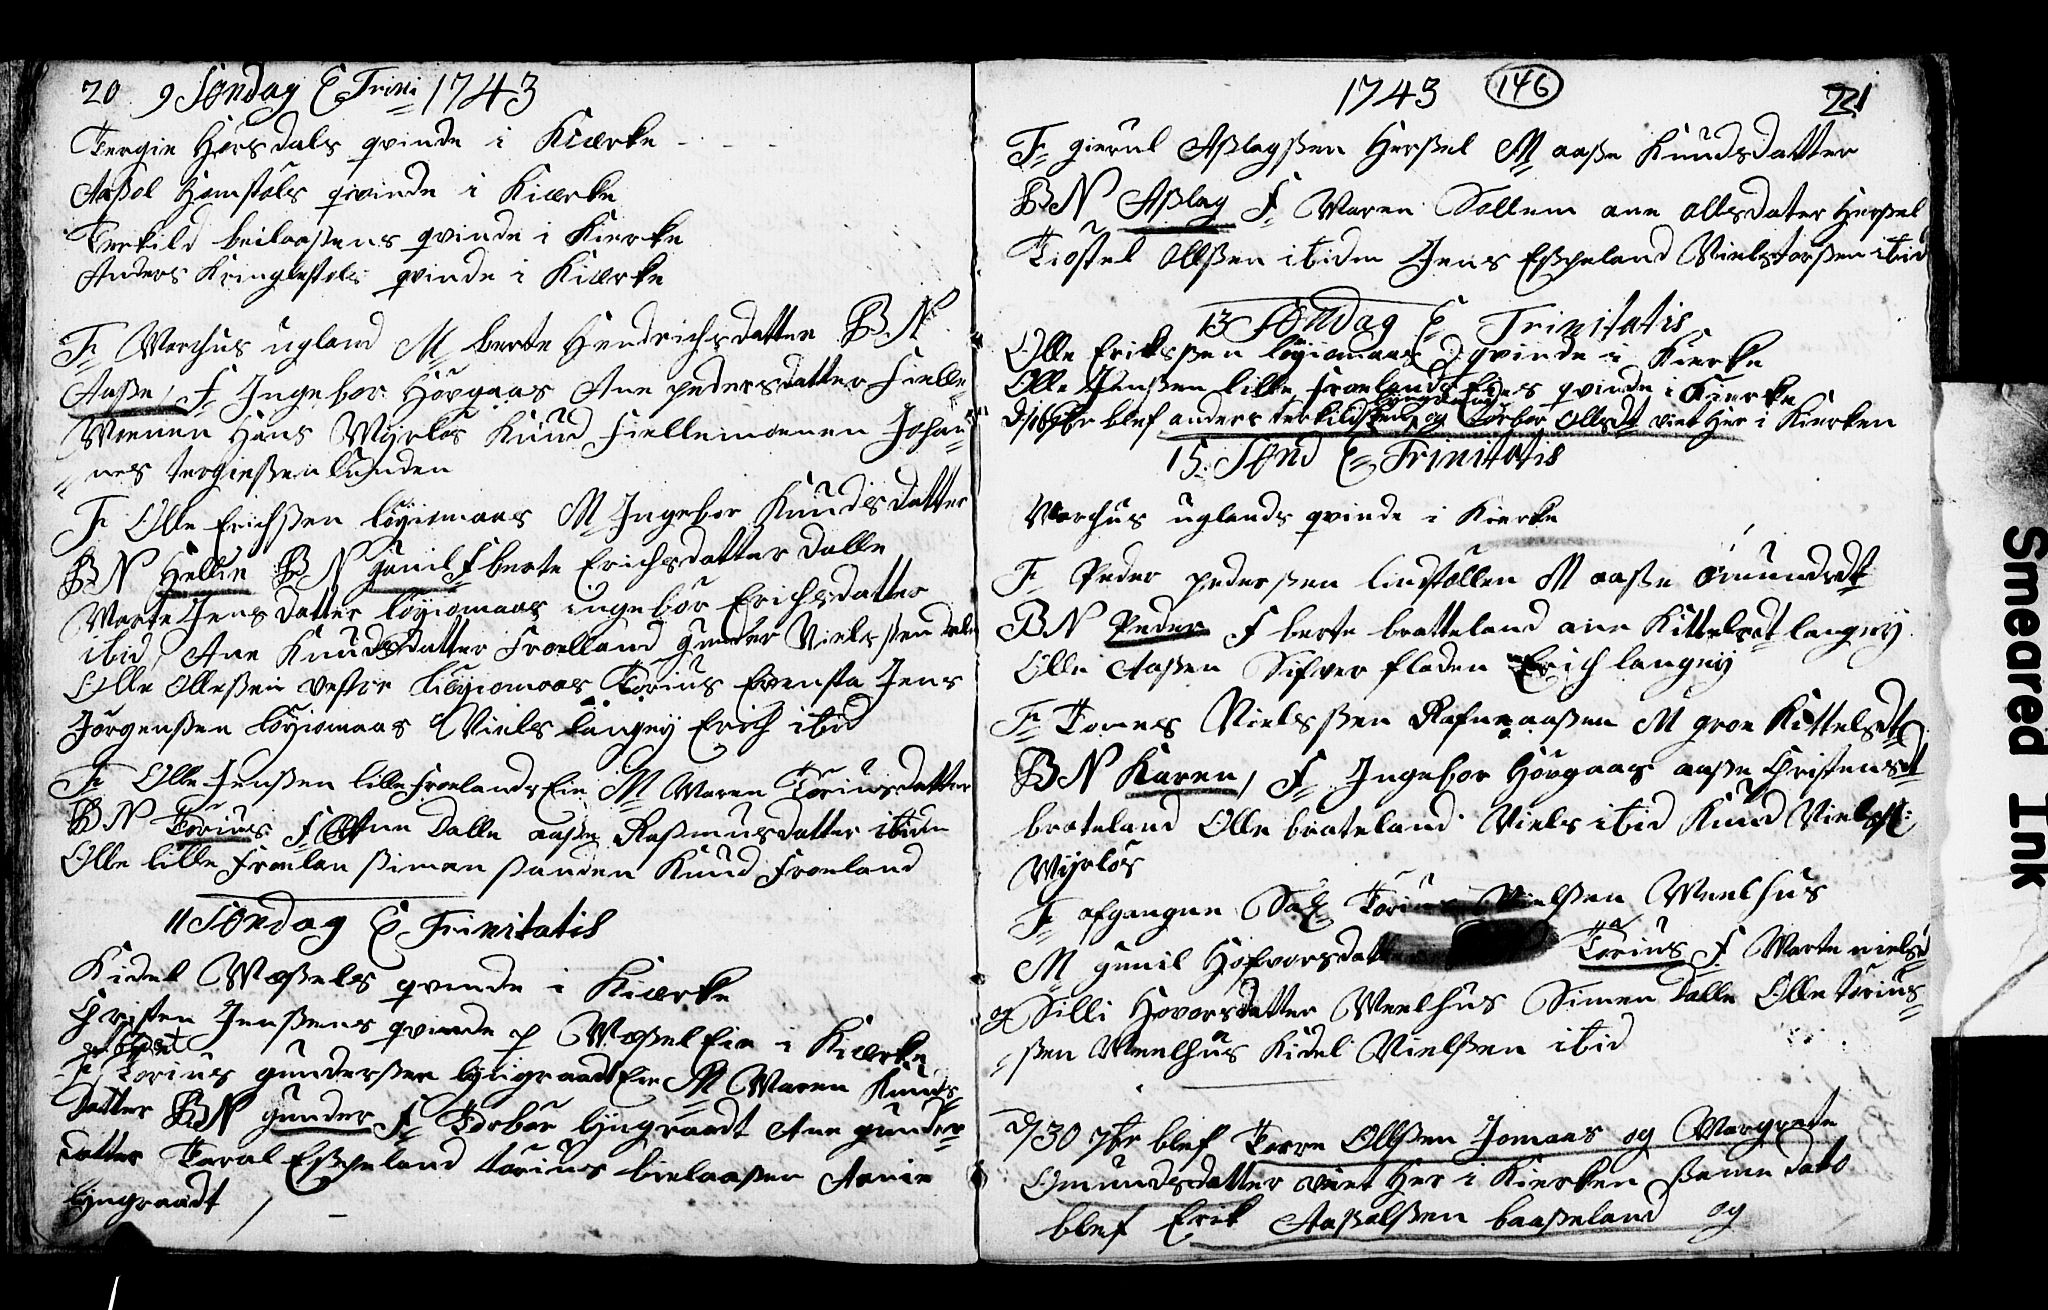 20 9 Søndag E Trini 1743
Tergie Hørsdals qvinde i Kiærke - - -
Aasol Homstøls qvinde i Kiærke
Terkild beilaasens qvinde i Kierke
Anders Kringlestøls qvinde i Kiærke
F Marchus ugland M berte Hendrichsdatter BN
Aaße, F Ingebor Høvgaas Ane pedersdatter Fielle
Moenen Hans Myrløs Knud Fiellemoenen Johan
nes tergießen lunden
F Olle Erichßen løyiomaas M Ingebor Knudsdatter
BN Hellie BN gunil F berte Erichsdatter Dalle
Marte Jensdatter løyiomaas ingebor Erichsdatter
ibid, Ane Knudsdatter Froelland gunder Nielsßen
Olle Olleßen vestre løyiomaas Torius Evensta Jens
Jørgenßen løyiomaas Niels langøy Erich ibid
F Olle Jenßen lille Froelands Eie M Maren Toriusdatter
BN Torius F Ane Dalle aaße Raßmusdatter ibidm
Olle lille Froelan ßimen ßanden Knud Froeland
11 Søndag E Trinitatis
Kidel Moßels qvinde i Kiærke
Christen Jenßens qvinde p Moßel Eie i Kiærke
F Torius gunderßen lyngraadt Eie M Maren Knuds
datter BN gunder F Torbor lyngraadt Ane gunder
datter Taral Eßcheland torius bielaaßen Aanie
lyngraadt
1743 146 221
F gierul Aßlagßen Herßel M aaße Knudsdatter
BN Aßlag F Maren Sollem ane ollsdater Herßel
Tiostel Ollßen ibidm Jens Eßcheland Niels torßen ibid
13 Søndag E Trinitatis
Olle Eriksßen løyiomaas qvinde i Kierke
Olle Jenßen lille Froelands Eies qvinde i Kierke
blef anders terkildßen og torbor Ollsdt viet Her i Kierken
15 Sønd E Trinitatis
Marchus uglands qvinde i Kierke
F Peder pederßen lindstøllen M aaße Omundsdt
BN Peder F berte bratteland ane Kittelsdt langøy
Olle Aaßen Sifver floden Erich langøy
F Tomes Nielsßen Rafneaaßen M groe Kittelsdt
BN Karen, F Ingebor Høvgaas aaße Christensdt
brateland Olle brateland Niels ibid Knud Niels
Myrløs
F afgangne Sal Torius Nielßen Meelhus
M gunil Hofvorsdatt Torius F Marte niels
og Silli Hovorsdatter Meelhus Simen Dalle Olle torius
ßen Meelhus Kidel Nielßen ibid
30 7br blef Terre Ollßen Jomaas og Margrete
Omundsdatter viet Her i Kierken ßame dato
blef Erik Aaßolßen baaßeland og
Smeared Ink